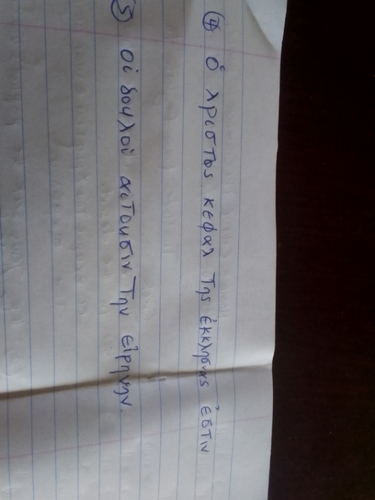 (4) ὁ λριστος κεφαλ της ἐκκλησιας ἐστιν
(5) οἱ δουλοὶ αἰτουσιν την εἰρηνην.